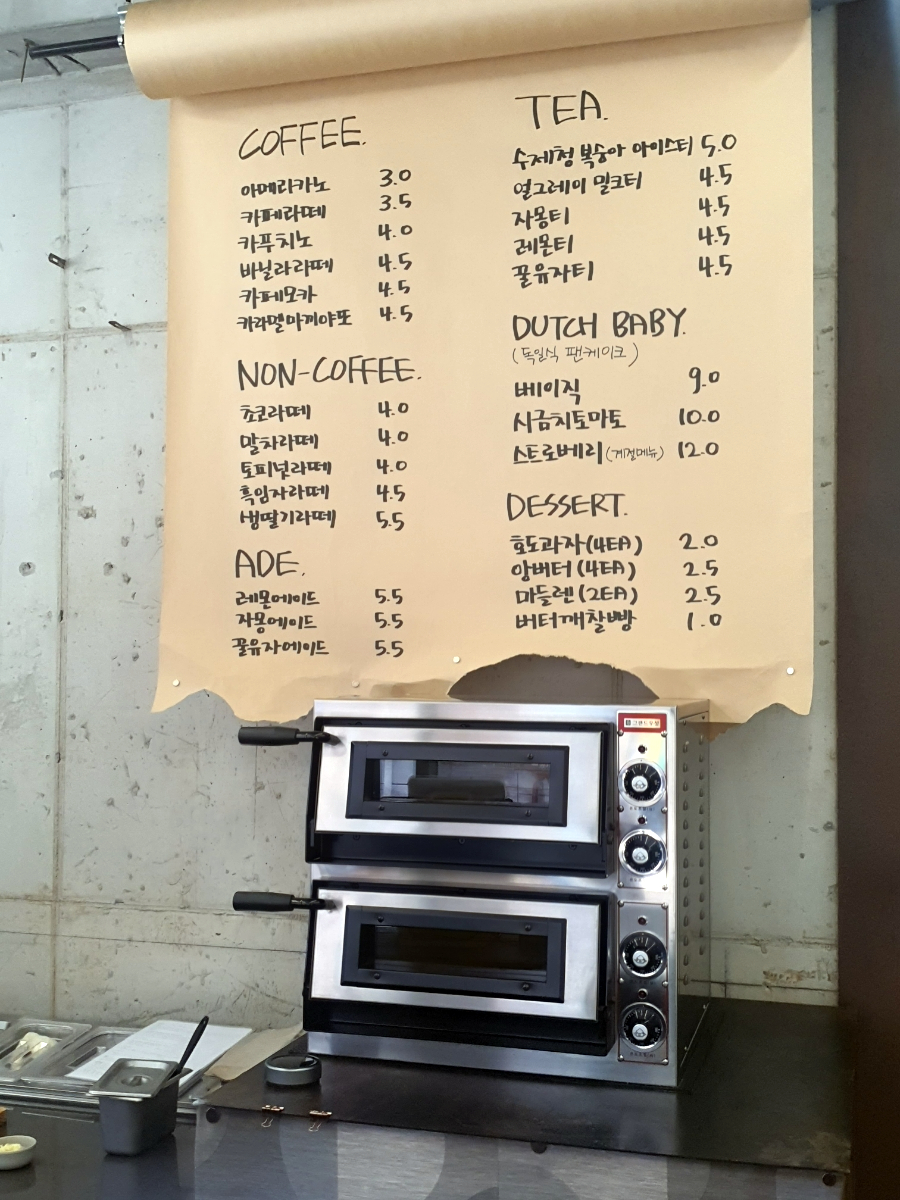 COFFEE.
아메리카노 3.0
카페라떼 3.5
카푸치노 4.0
바닐라라떼 4.5
카페모카 4.5
카라멜마끼야또 4.5
NON-COFFEE.
쵸코라떼 4.0
말차라떼 4.0
토피넛라떼 4.0
흑임자라떼 4.5
생딸기라떼 5.5
ADE.
레몬에이드 5.5
자몽에이드 5.5
꿀유자에이드 5.5
TEA.
수제청 복숭아 아이스티 5.0
얼그레이 밀크티 4.5
자몽티 4.5
레몬티 4.5
꿀유자티 4.5
DUTCH BABY.
(독일식 팬케이크)
베이직 9.0
시금치토마토 10.0
스트로베리 (계절메뉴) 12.0
DESSERT.
호도과자 (4EA) 2.0
앙버터 (4EA) 2.5
마들렌 (2EA) 2.5
버터깨찰빵 1.0